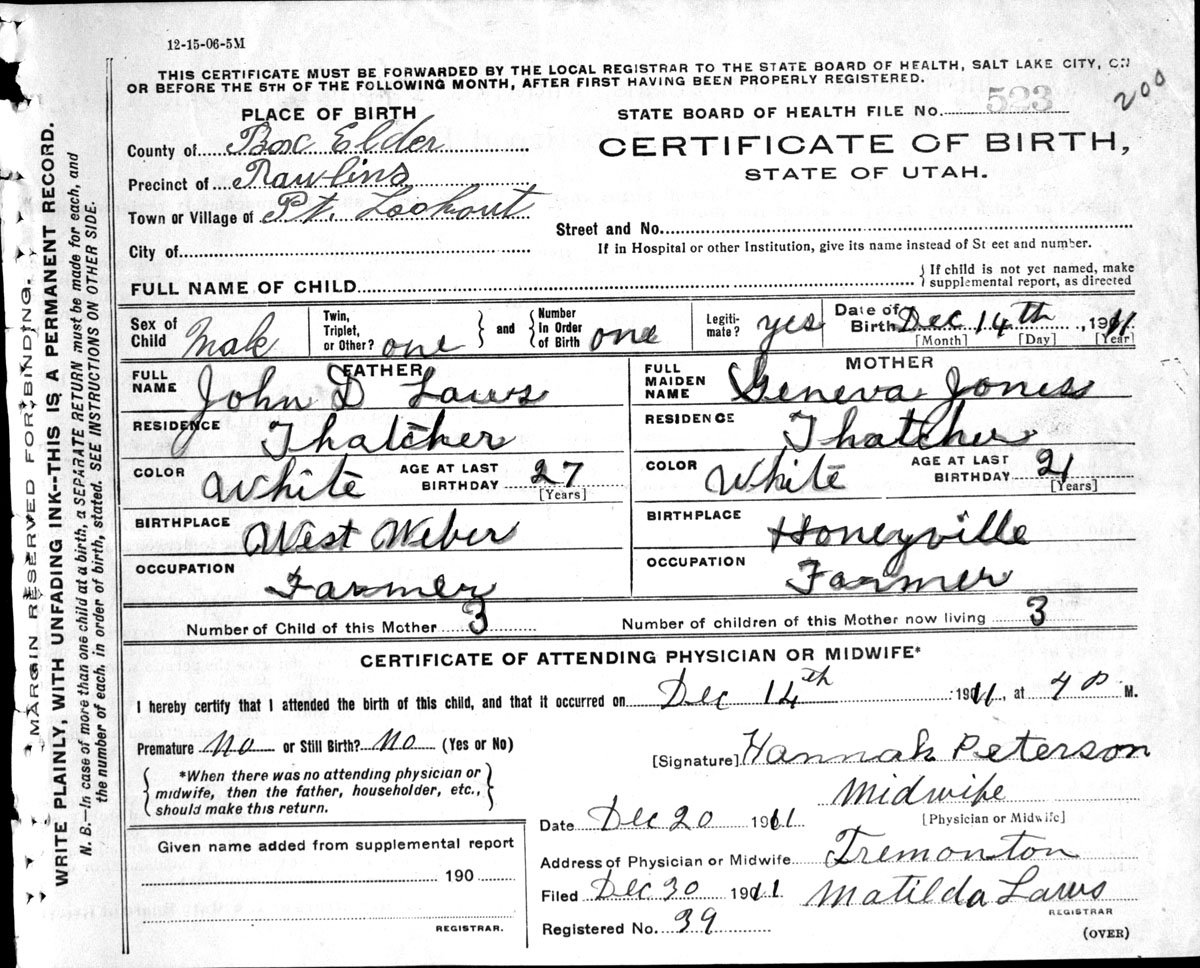 12-15-06-5M
THIS CERTIFICATE MUST BE FORWARDED BY THE LOCAL REGISTRAR TO THE STATE BOARD OF HEALTH, SALT LAKE CITY, ON
OR BEFORE THE 5TH OF THE FOLLOWING MONTH, AFTER FIRST HAVING BEEN PROPERLY REGISTERED.
200
PLACE OF BIRTH
STATE BOARD OF HEALTH FILE No. 523
County of Box Elder
CERTIFICATE OF BIRTH,
Precinct of Rawlins
STATE OF UTAH.
Town or Village of Pt. Lookout
Street and No.
City of
If in Hospital or other Institution, give its name instead of St eet and number.
FULL NAME OF CHILD
{ If child is not yet named, make
supplemental report, as directed
Sex of Child Male
Twin, Triplet, or Other? one } and { Number in Order of Birth one
Legiti-mate? yes
Date of Birth Dec 14th, 1911
[Month] [Day] [Year]
FATHER
FULL NAME John D Laws
RESIDENCE Thatcher
COLOR White AGE AT LAST BIRTHDAY 27 [Years]
BIRTHPLACE West Weber
OCCUPATION Farmer
MOTHER
FULL MAIDEN NAME Geneva Jones
RESIDENCE Thatcher
COLOR White AGE AT LAST BIRTHDAY 21 [Years]
BIRTHPLACE Honeyville
OCCUPATION Farmer
Number of Child of this Mother 3 Number of children of this Mother now living 3
CERTIFICATE OF ATTENDING PHYSICIAN OR MIDWIFE*
I hereby certify that I attended the birth of this child, and that it occurred on Dec 14th 1911, at 4 P M.
Premature No or Still Birth? No (Yes or No)
{ *When there was no attending physician or
midwife, then the father, householder, etc.,
should make this return. }
[Signature] Hannah Peterson
Midwife
[Physician or Midwife]
Date Dec 20 1911
Given name added from supplemental report
190
REGISTRAR.
Address of Physician or Midwife Tremonton
Filed Dec 30 1911 Matilda Laws
REGISTRAR
Registered No. 39
(OVER)
MARGIN RESERVED FOR BINDING.
WRITE PLAINLY, WITH UNFADING INK--THIS IS A PERMANENT RECORD.
N. B.—In case of more than one child at a birth, a SEPARATE RETURN must be made for each, and
the number of each, in order of birth, stated. SEE INSTRUCTIONS ON OTHER SIDE.